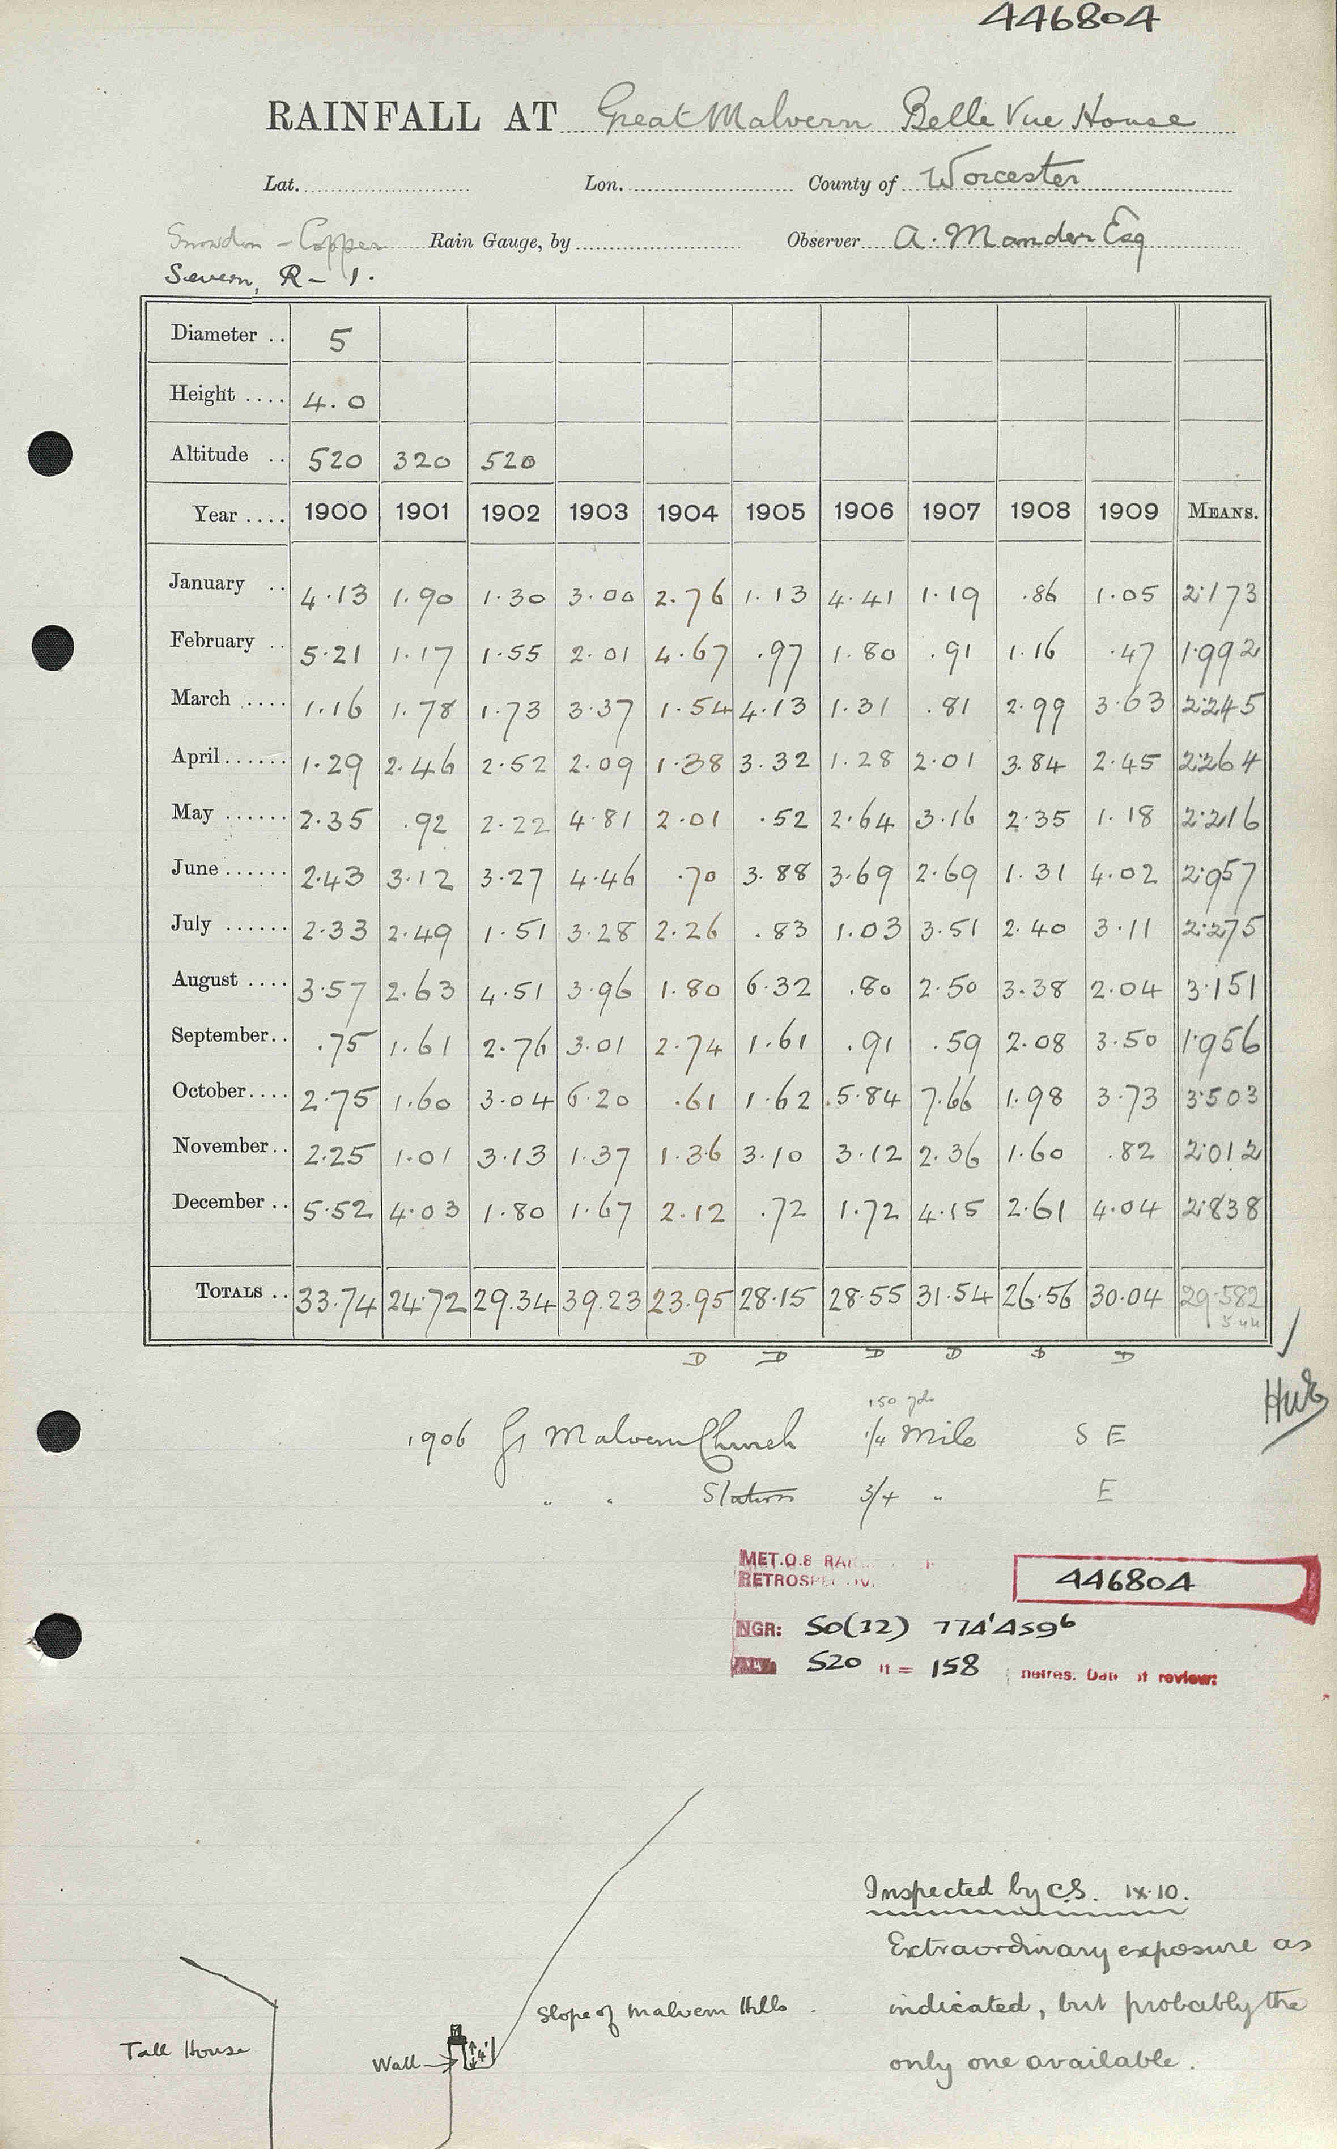 446804
RAINFALL AT Great Malvern Belle Vue House
Lat. Lon. County of Worcester
Snowdon - Copper Rain Gauge, by Observer A. Mander Esq
Severn, R - 1.
Diameter .. 5
Height .... 4.0
Altitude .. 520 320 520
Year .... 1900 1901 1902 1903 1904 1905 1906 1907 1908 1909 MEANS.
January .. 4.13 1.90 1.30 3.00 2.76 1.13 4.41 1.19 .86 1.05 2.173
February .. 5.21 1.17 1.55 2.01 4.67 .97 1.80 .91 1.16 .47 1.992
March .... 1.16 1.78 1.73 3.37 1.54 4.13 1.31 .81 2.99 3.63 2.245
April ...... 1.29 2.46 2.52 2.09 1.38 3.32 1.28 2.01 3.84 2.45 2.264
May ...... 2.35 .92 2.22 4.81 2.01 .52 2.64 3.16 2.35 1.18 2.216
June ...... 2.43 3.12 3.27 4.46 .70 3.88 3.69 2.69 1.31 4.02 2.957
July ...... 2.33 2.49 1.51 3.28 2.26 .83 1.03 3.51 2.40 3.11 2.275
August .... 3.57 2.63 4.51 3.96 1.80 6.32 .80 2.50 3.38 2.04 3.151
September .. .75 1.61 2.76 3.01 2.74 1.61 .91 .59 2.08 3.50 1.956
October .... 2.75 1.60 3.04 6.20 .61 1.62 5.84 7.66 1.98 3.73 3.503
November .. 2.25 1.01 3.13 1.37 1.36 3.10 3.12 2.36 1.60 .82 2.012
December .. 5.52 4.03 1.80 1.67 2.12 .72 1.72 4.15 2.61 4.04 2.838
TOTALS .. 33.74 24.72 29.34 39.23 23.95 28.15 28.55 31.54 26.56 30.04 29.582
544
D D D D D D
150 yds
1906 Gt Malvern Church 1/4 Mile S E
" " Station 3/4 " E
MET.O.8
446804
NGR: SO(32) 774'4596
520 = 158 metres. Date of review:
Inspected by C.S. IX.10.
Extraordinary exposure as
indicated, but probably the
only one available.
Slope of Malvern Hills
Tall House
Wall
4'